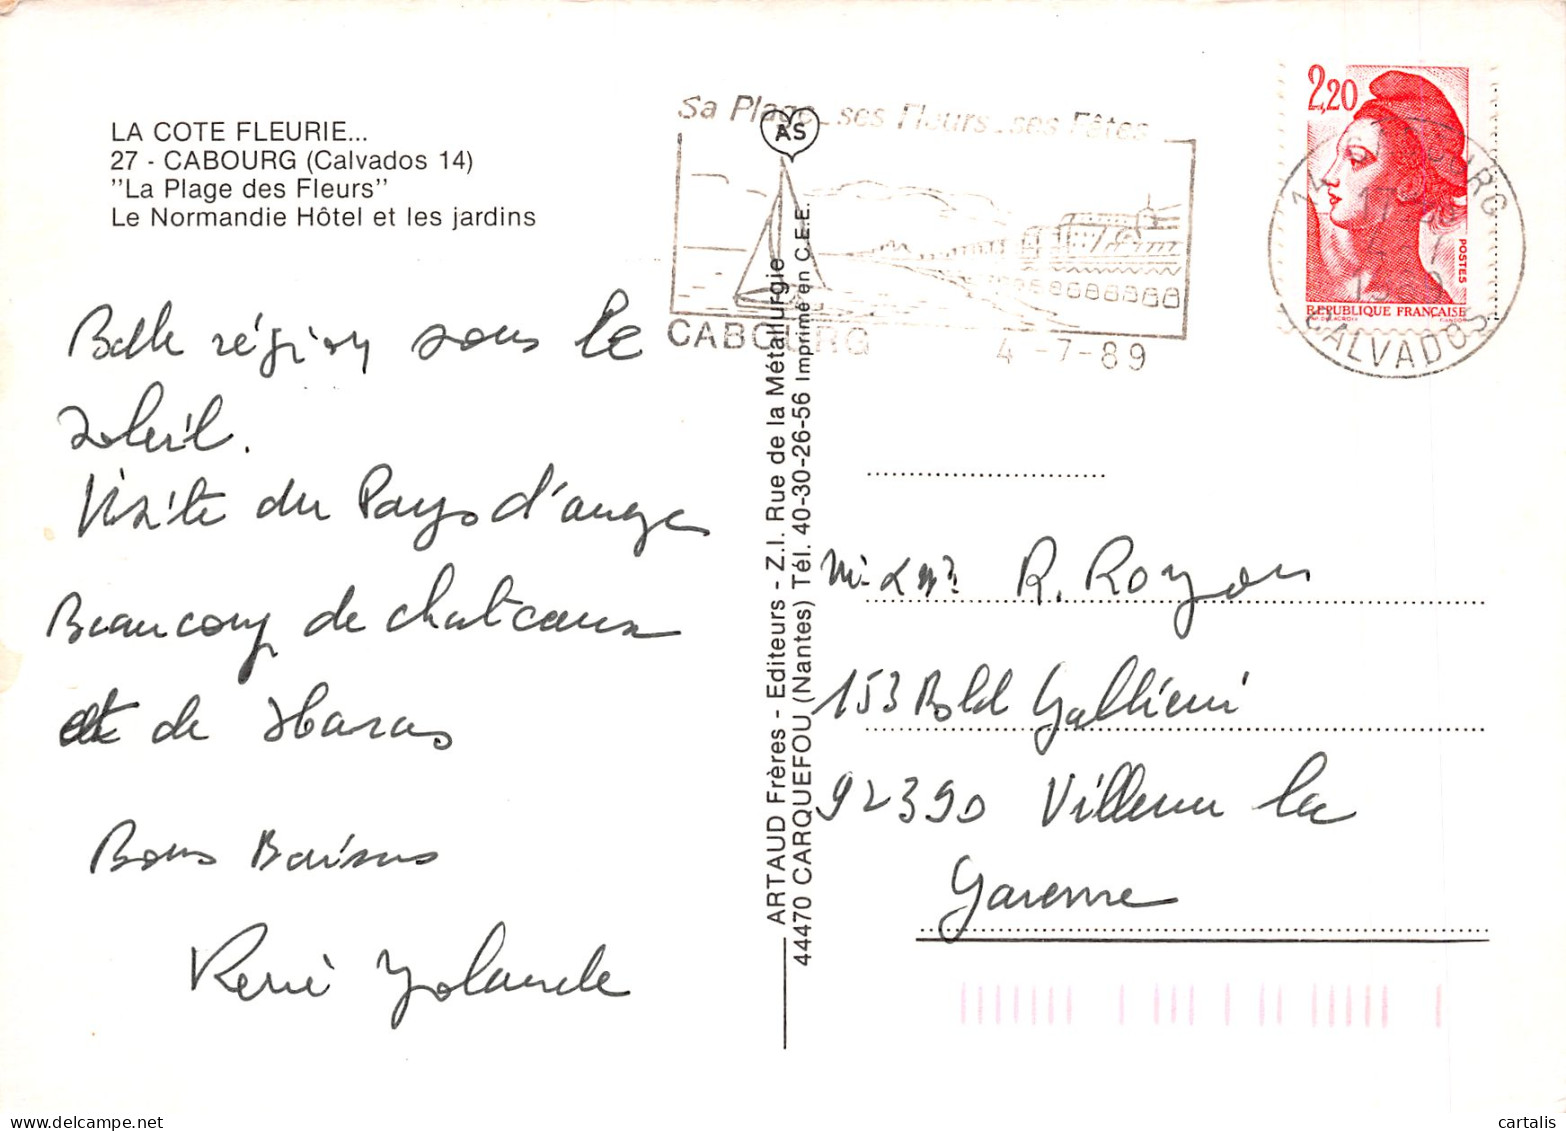 LA COTE FLEURIE...
27 - CABOURG (Calvados 14)
"La Plage des Fleurs"
Le Normandie Hôtel et les jardins
Belle région sous le
soleil.
Visite du Pays d'auge
Beaucoup de chateaux
et de Haras
Bons Baisers
René Yolande
ARTAUD Frères - Editeurs - Z.I. Rue de la Métallurgie
44470 CARQUEFOU (Nantes) Tél. 40-30-26-56 Imprimé en C.E.E.
AS
Sa Plage_ses Fleurs_ses Fêtes
CABOURG
4 -7-89
2,20
POSTES
REPUBLIQUE FRANÇAISE
14 CABOURG
CALVADOS
R. Royon
153 Bold Gallieni
92390 Villeneuve la
Garenne
cartalis